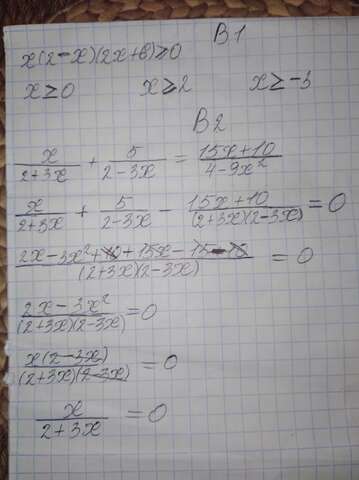 B1
x(2-x)(2x+6)≥0
x≥0 x≥2 x≥-3
B2
x/(2+3x) + 5/(2-3x) = (15x+10)/(4-9x²)
x/(2+3x) + 5/(2-3x) - (15x+10)/((2+3x)(2-3x)) = 0
(2x-3x²+10+15x-15-15)/((2+3x)(2-3x)) = 0
(2x-3x²)/((2+3x)(2-3x)) = 0
x(2-3x)/((2+3x)(2-3x)) = 0
x/(2+3x) = 0